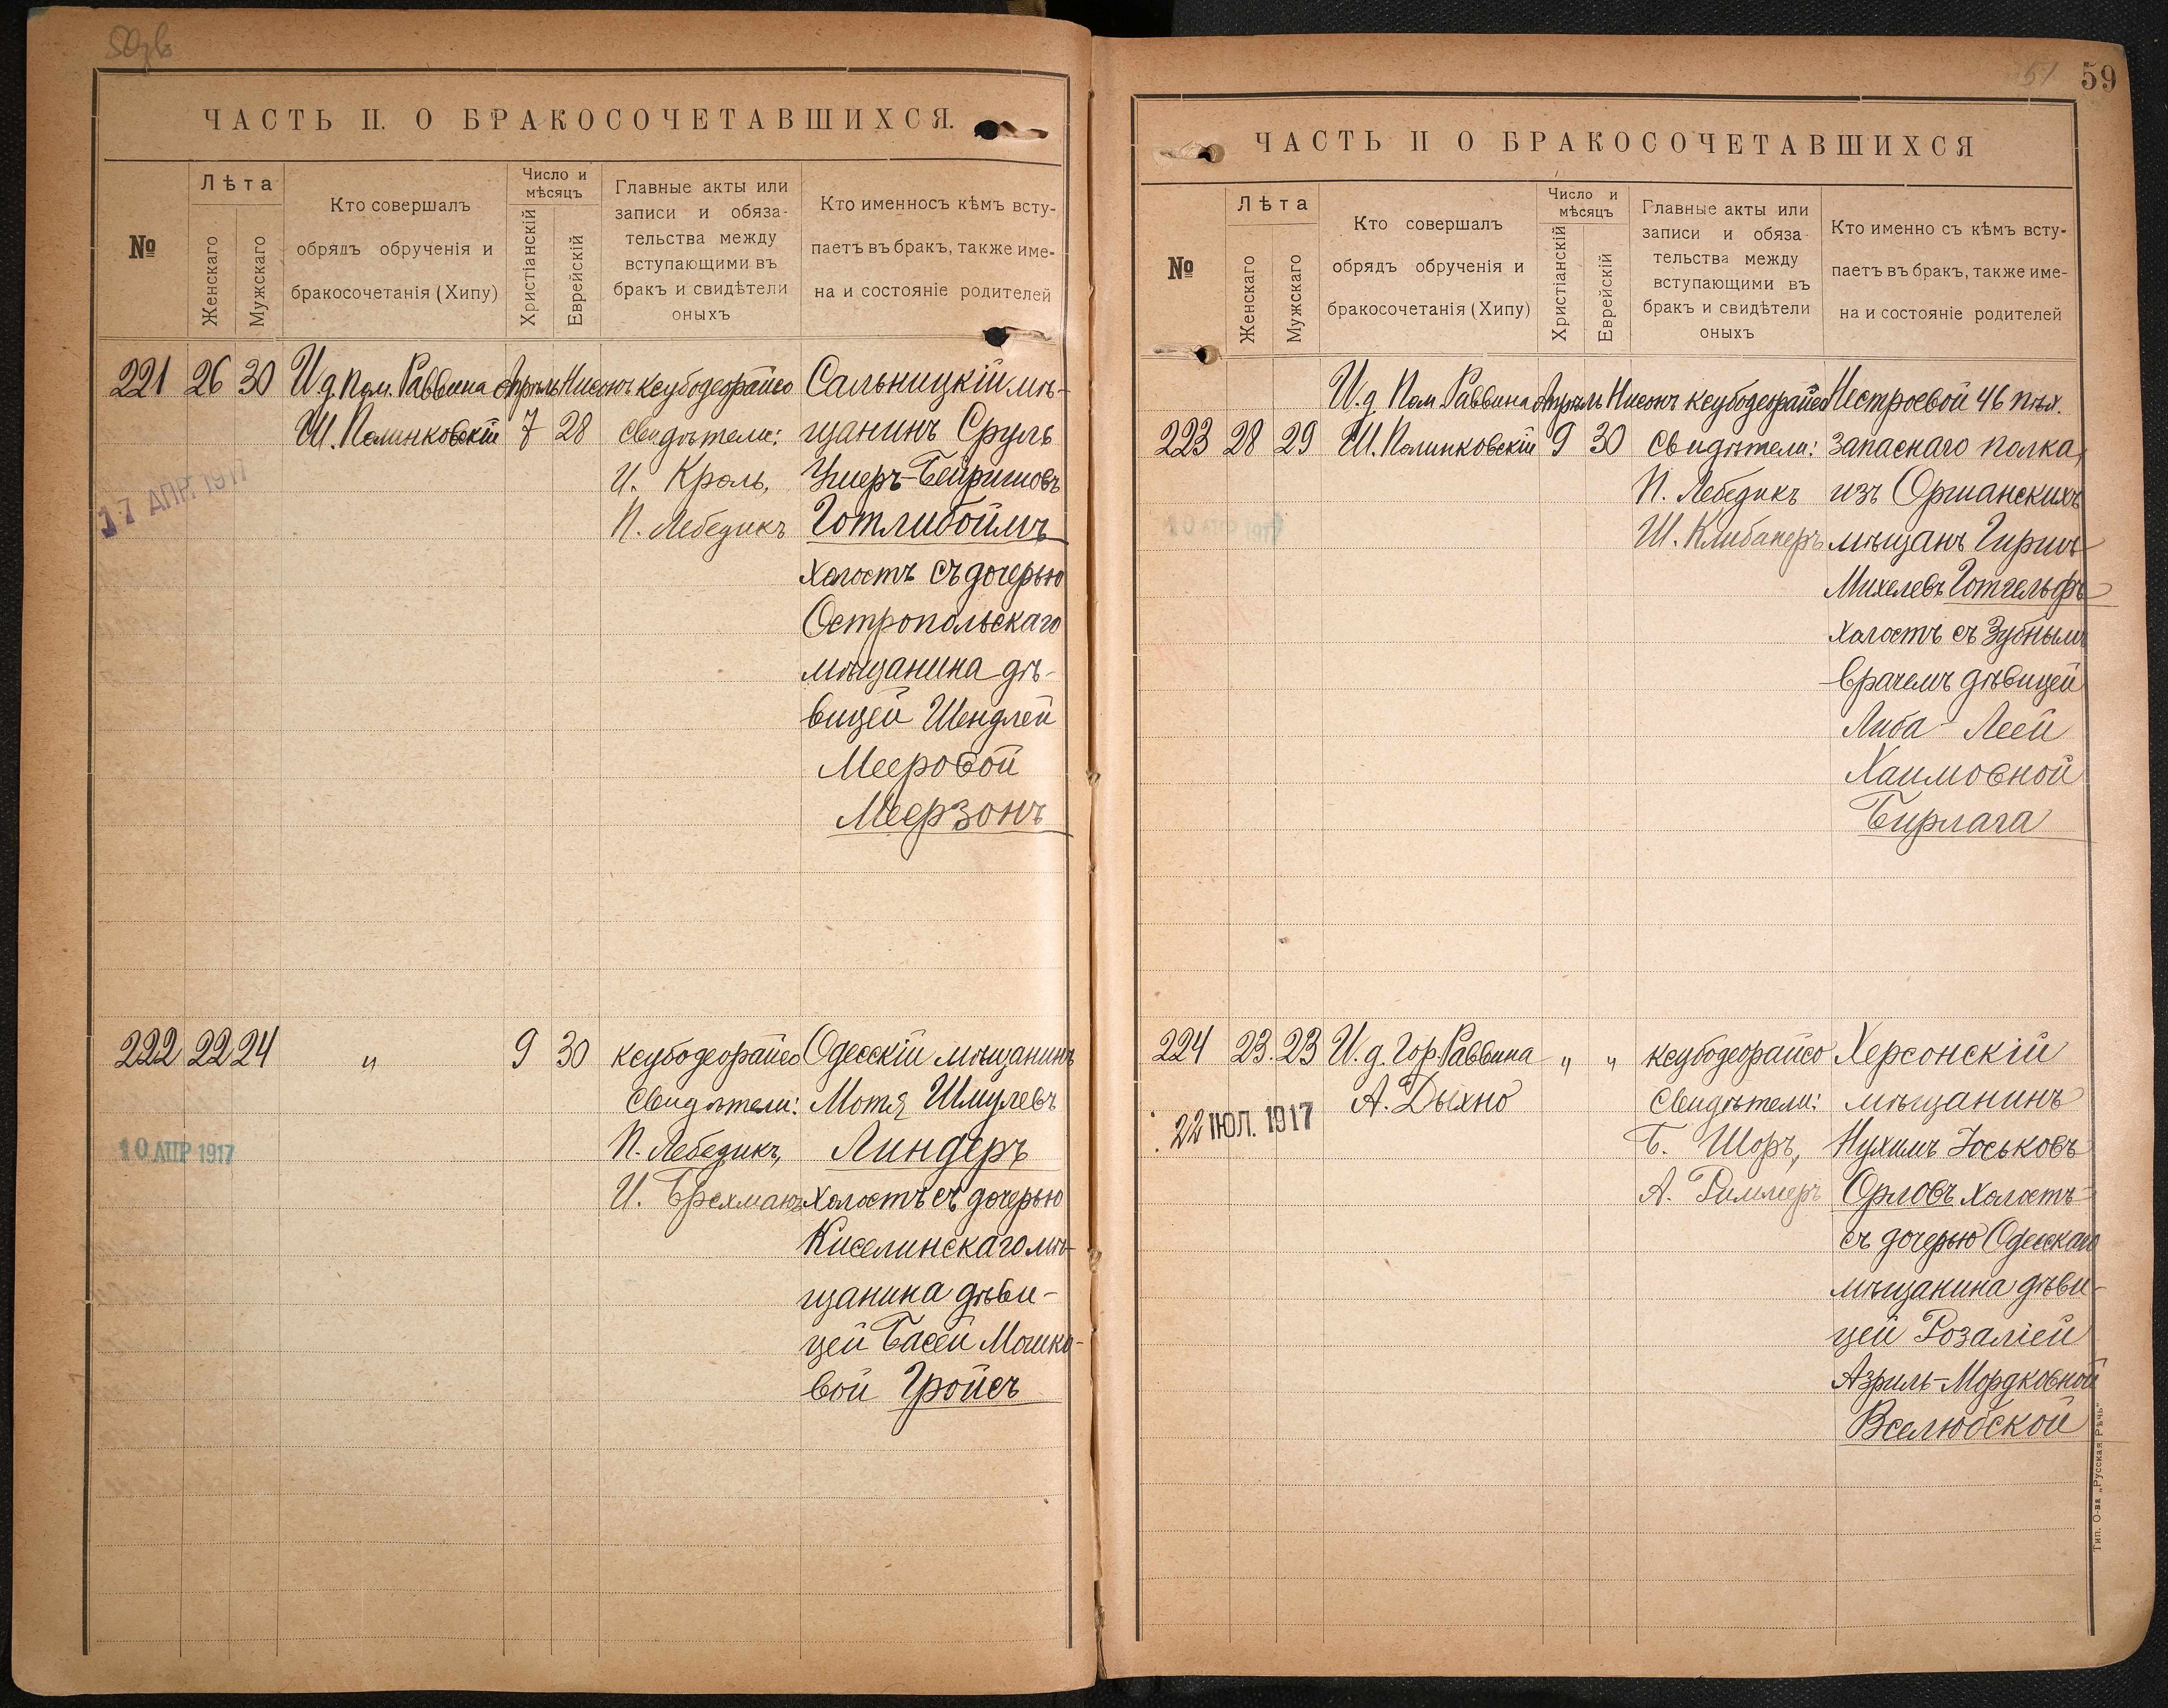 ЧАСТЬ II. О БРАКОСОЧЕТАВШИХСЯ.
№
Лѣта
Женскаго
Мужскаго
Кто совершалъ
обрядъ обрученія и
бракосочетанія (Хипу)
Число и
мѣсяцъ
Христіанскій
Еврейскій
Главные акты или
записи и обяза-
тельства между
вступающими въ
бракъ и свидѣтели
оныхъ
Кто именносъ кѣмъ всту-
паетъ въ бракъ, также име-
на и состояніе родителей
221 26 30
И.д. Пом. Раввина
Ш. Полинковскій
Апрѣль
7
Нисонъ
28
ксубодеорайсо
Свидѣтели:
И. Кроль,
П. Лебедикъ
Сальницкій мѣ-
щанинъ Сруль
Ушеръ-Бейришовъ
Готлибоймъ
холостъ съ дочерью
Остропольскаго
мѣщанина дѣ-
вицей Шендлей
Мееровой
Меерзонъ
17 АПР. 1917
222 22 24
"
9
30
ксубодеорайсо
Свидѣтели:
П. Лебедикъ,
И. Брехманъ
Одесскій мѣщанинъ
Мотя Шмулевъ
Линдеръ
холостъ съ дочерью
Киселинскаго мѣ-
щанина дѣви-
цей Басей Мошко-
вой Гройсъ
10 АПР 1917
51
59
ЧАСТЬ II О БРАКОСОЧЕТАВШИХСЯ
№
Лѣта
Женскаго
Мужскаго
Кто совершалъ
обрядъ обрученія и
бракосочетанія (Хипу)
Число и
мѣсяцъ
Христіанскій
Еврейскій
Главные акты или
записи и обяза
тельства между
вступающими въ
бракъ и свидѣтели
оныхъ
Кто именно съ кѣмъ всту-
паетъ въ бракъ, также име-
на и состояніе родителей
223 28 29
И.д. Пом. Раввина
Ш. Полинковскій
Апрѣль
9
Нисонъ
30
ксубодеорайсо
Свидѣтели:
П. Лебедикъ
Ш. Клибанеръ
Нестроевой 46 пѣх.
запаснаго полка,
изъ Оршанскихъ
мѣщанъ Гиршъ
Михелевъ Готгельфъ
холостъ съ Зубнымъ
врачемъ дѣвицей
Либа-Леей
Хаимовной
Бирлага
224 23. 23
И.д. Гор. Раввина
А. Дыхно
"
"
ксубодеорайсо
Свидѣтели:
Б. Шоръ,
А. Риммеръ
Херсонскій
мѣщанинъ
Нухимъ Юськовъ
Орловъ холостъ
съ дочерью Одесскаго
мѣщанина дѣви-
цей Розаліей
Азриль-Мордковной
Вселюбской
22 ІЮЛ. 1917
Тип. О-ва „Русская Рѣчь“